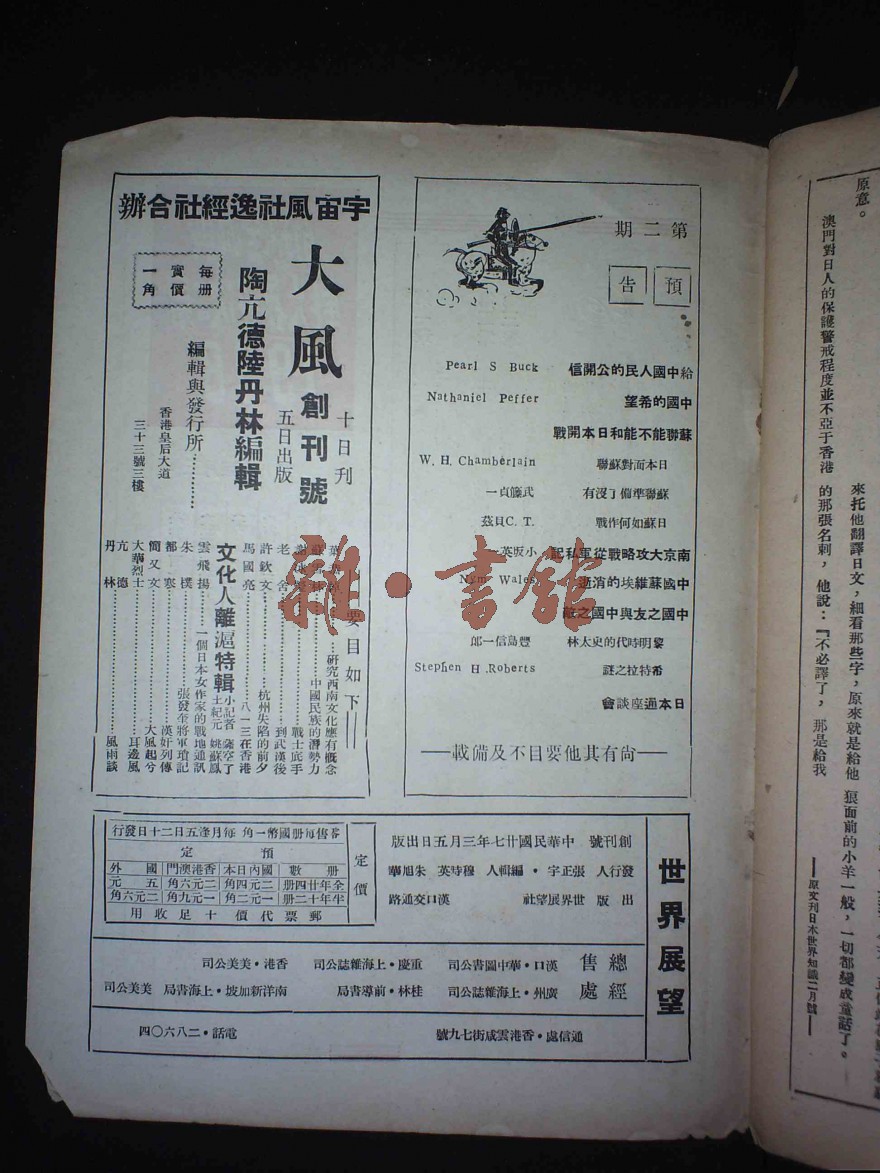 原意。
澳門對日人的保護警戒程度並不亞于香港
來托他翻譯日文，細看那些字，原來就是給他
的那張名刺，他說：『不必譯了，那是給我
狼面前的小羊一般，一切都變成童話了。
——原文刊日本世界知識二月號——
第二期
預告
給中國人民的公開信 Pearl S Buck
中國的希望 Nathaniel Peffer
蘇聯能不能和日本開戰
日本面對蘇聯 W. H. Chamberlain
蘇聯準備了沒有 武籐貞一
日蘇如何作戰 T.C.貝茲
南京大攻略戰從軍私記 小坂英一
中國蘇維埃的消逝 Nym Wales
中國之友與中國之敵
黎明時代的史太林 豐島信一郎
希特拉之謎 Stephen H.Roberts
日本通座談會
——尚有其他要目不及備載——
宇宙風社逸經社合辦
大風創刊號
十日刊
五日出版
陶亢德陸丹林編輯
每册實價一角
編輯與發行所…………
香港皇后大道
三十三號三樓
要目如下——
研究西南文化應有概念
中國民族的潛勢力
戰士底手
老舍……到武漢後
許欽文……杭州失陷的前夕
馬國亮……八一三在香港
文化人離滬特輯 小記者 薩空了 土紀元 姚蘇鳳
雲飛揚……一個日本女作家的戰地通訊
朱樸……張發奎將軍瑣記
都哀……漢奸列傳
簡又文……大風起兮
大華烈士……耳邊風
亢德
丹林……風雨談
世界展望
創刊號 中華民國廿七年三月五日出版
發行人 張正宇・編輯人 穆時英 朱旭華
出版 世界展望社 漢口交通路
定價
零售每册國幣一角 每月逢五日二十日發行
預定
册數 國內日本 香港澳門 國外
全年廿四册 二元四角 二元六角 五元
半年十二册 一元二角 一元九角 二元六角
郵票代價十足收用
總經售處
漢口・華中圖書公司 重慶・上海雜誌公司 香港・美美公司
廣州・上海雜誌公司 桂林・前導書局 南洋新加坡・上海書局 美美公司
通信處・香港雲咸街七九號 電話・二八六〇四
雜・書舘